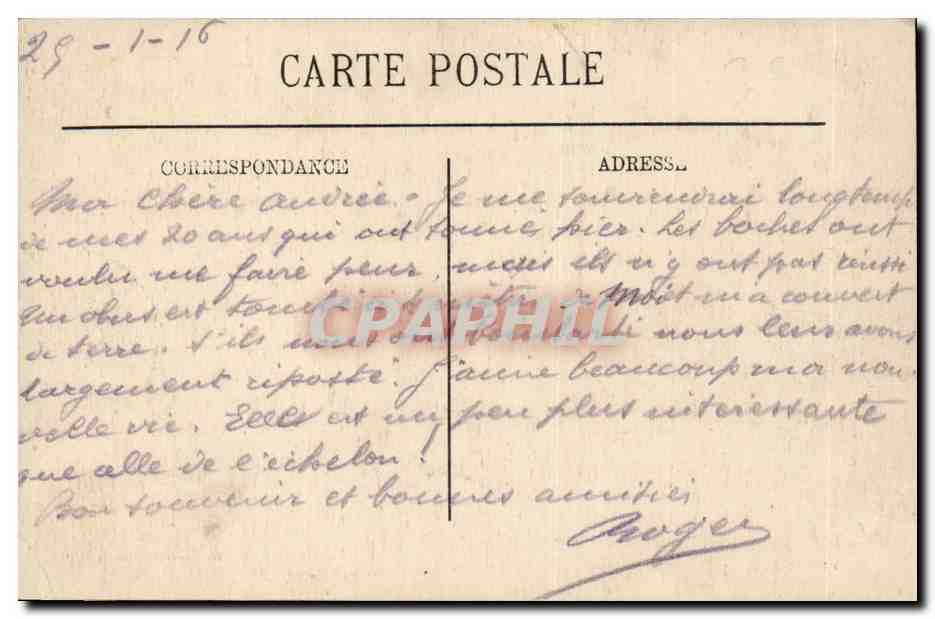 25-1-16
CARTE POSTALE
CORRESPONDANCE
ADRESSE
Ma Chère Andrée. Je me souviendrai longtemps
de mes 20 ans qui ont sonné hier. Les boches ont
voulu me faire peur, mais ils n'y ont pas réussi
un obus est tombé à et m'a couvert
de terre. S'ils nous ont bombardé nous leur avons
largement riposté. J'aime beaucoup ma nou-
velle vie. Elle est un peu plus intéressante
que celle de l'échelon!
Bon souvenir et bonnes amitiés
Roger
CPAPHIL